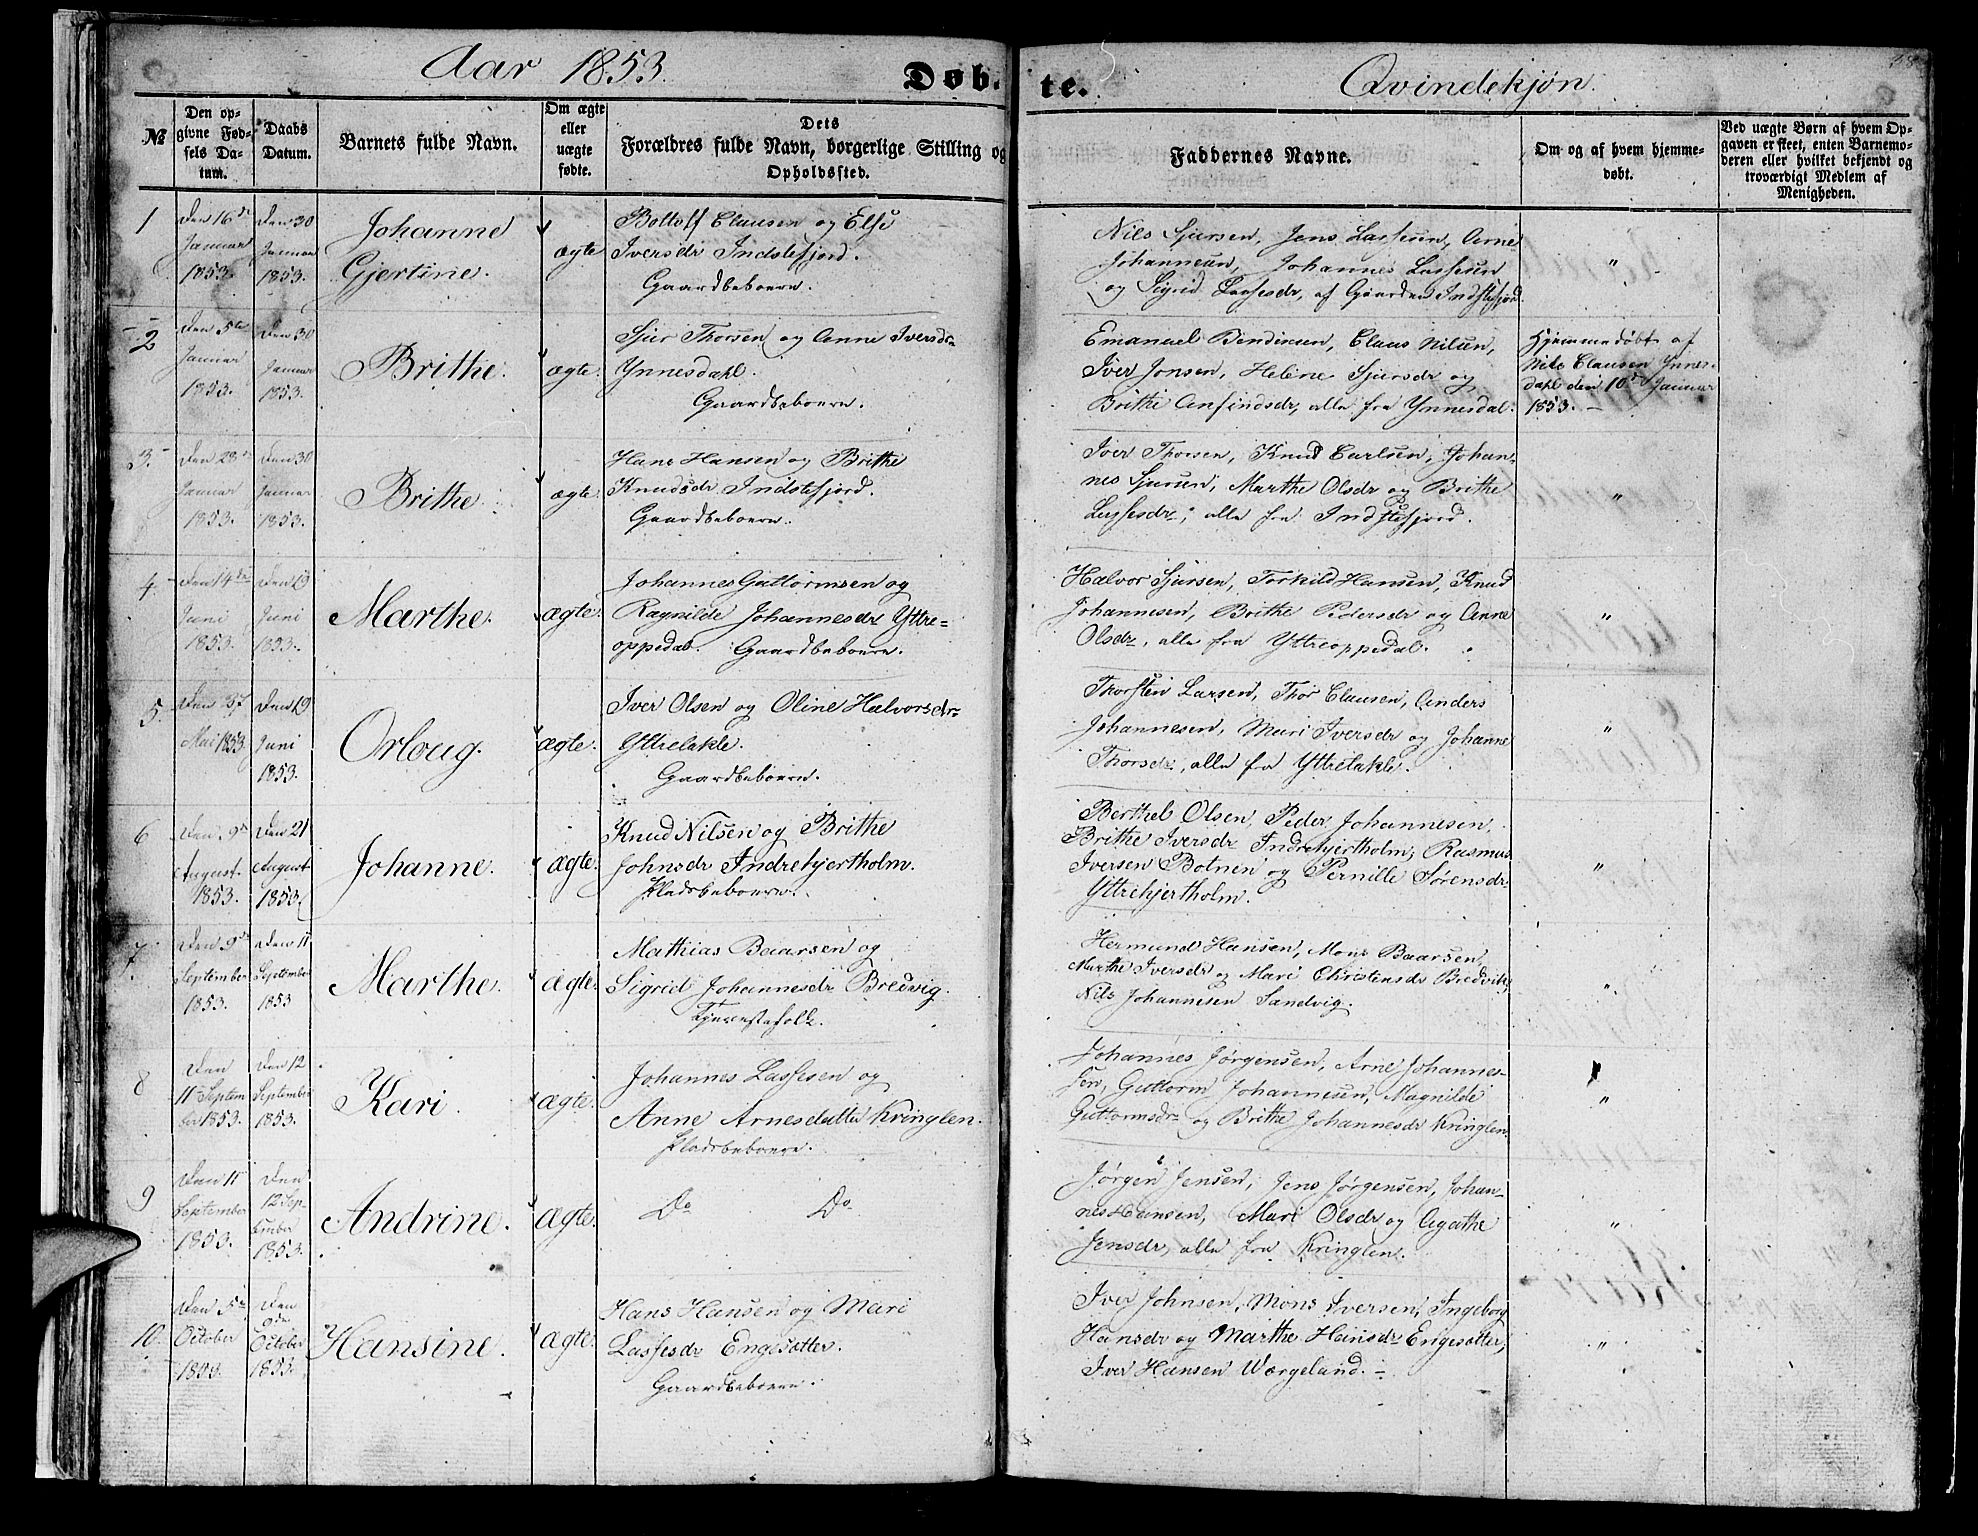 Aar 1853.
Døb-
te.
Qvindekjøn.
№
Den op-
givne Fød-
sels Da-
tum.
Daabs
Datum.
Barnets fulde Navn.
Om ægte
eller
uægte
fødte.
Dets
Forældres fulde Navn, borgerlige Stilling og
Opholdssted.
Faddernes Navne.
Om og af hvem hjemme-
døbt.
Ved uægte Børn af hvem Op-
gaven er skeet, enten Barnemo-
deren eller hvilket bekjendt og
troværdigt Medlem af
Menigheden.
1
Den 16de
Januar
1853.
Den 30
Januar
1853.
Johanne
Gjertine.
ægte
Bottolf Clausen og Else
Iversdr Indstefjord.
Gaardbeboere.
Nils Sjursen, Jens Lassesen, Arne
Johannesen, Johannes Lassesen
og Sigrid Lassesdr, af Gaarden Indstefjord.
"
2
Den 5te
Januar
1853.
Den 30
Januar
1853.
Brithe.
ægte.
Sjur Thorsen og Anne Iversdr
Ynnesdahl.
Gaardbeboere.
Emanuel Bendixen, Claus Nilsen,
Iver Jonsen, Heléne Sjursdr og
Brithe Anfindsdr, alle fra Ynnesdal.
Hjemmedøbt af
Nils Clausen Ynnes-
dahl den 10de Januar
1853. –
3.
Den 28de
Januar
1853.
Den 30
Januar
1853.
Brithe.
ægte.
Hans Hansen og Brithe
Knudsdr Indstefjord.
Gaardbeboere.
Iver Thorsen, Knud Carlsen, Johan-
nes Sjursen, Marthe Olsdr og Brithe
Lassesdr, alle fra Indstefjord.
"
4.
Den 14de
Juni
1853.
Den 19
Juni
1853.
Marthe.
ægte.
Johannes Guttormsen og
Ragnilde Johannesdr Yttre-
oppedal. Gaardbeboere.
Halvor Sjursen, Torkild Hansen, Knud
Johannesen, Brithe Pedersdr og Anne
Olsdr, alle fra Yttreoppedal.
"
5
Den 27
Mai 1853.
Den 19
Juni
1853.
Orloug.
ægte.
Iver Olsen og Oline Halvorsdr
Yttretakle.
Gaardbeboere.
Thorsten Larsen, Thor Clausen, Anders
Johannesen, Mari Iversdr og Johanne
Thorsdr, alle fra Yttretakle.
"
6
Den 9de
August
1853.
Den 21
August
1853.
Johanne.
ægte.
Knud Nilsen og Brithe
Johnsdr Indrehjertholm.
Pladsbeboere.
Berthel Olsen, Peder Johannesen,
Brithe Iversdr Indrehjertholm, Rasmus
Iversen Botnen og Pernille Sørensdr
Yttrehjertholm.
"
7
Den 9de
September
1853.
Den 11
September
1853
Marthe.
ægte.
Mathias Baarsen og
Sigrid Johannesdr Bredvig.
Tjenestefolk.
Hermund Hansen, Mons Baarsen,
Marthe Iversdr og Mari Christensdr Bredvik,
Nils Johannesen Sandvig.
"
8
Den
11 Septem
ber 1853.
Den 12
September
1853.
Kari.
ægte.
Johannes Lassesen og
Anne Arnesdatter Kringlen.
Pladsbeboere.
Johannes Jørgensen, Arne Johannes-
sen, Guttorm Johannesen, Magnilde
Guttormsdr og Brithe Johannesdr Kringlen.
"
9
Den 11
September
1853.
Den
12 Sep-
tember
1853.
Andrine.
ægte.
Do Do
Jørgen Jensen, Jens Jørgensen, Johan-
nes Hansen, Mari Olsdr og Agathe
Jensdr, alle fra Kringlen.
"
10.
Den 5te
October
1853.
Den
9de
October
1853.
Hansine.
ægte.
Hans Hansen og Mari
Lassesdr Engesætter.
Gaardbeboere.
Iver Johnsen, Mons Iversen, Ingeborg
Hansdr og Marthe Hansdr Engesætter,
Iver Hansen Wærgeland. –
"